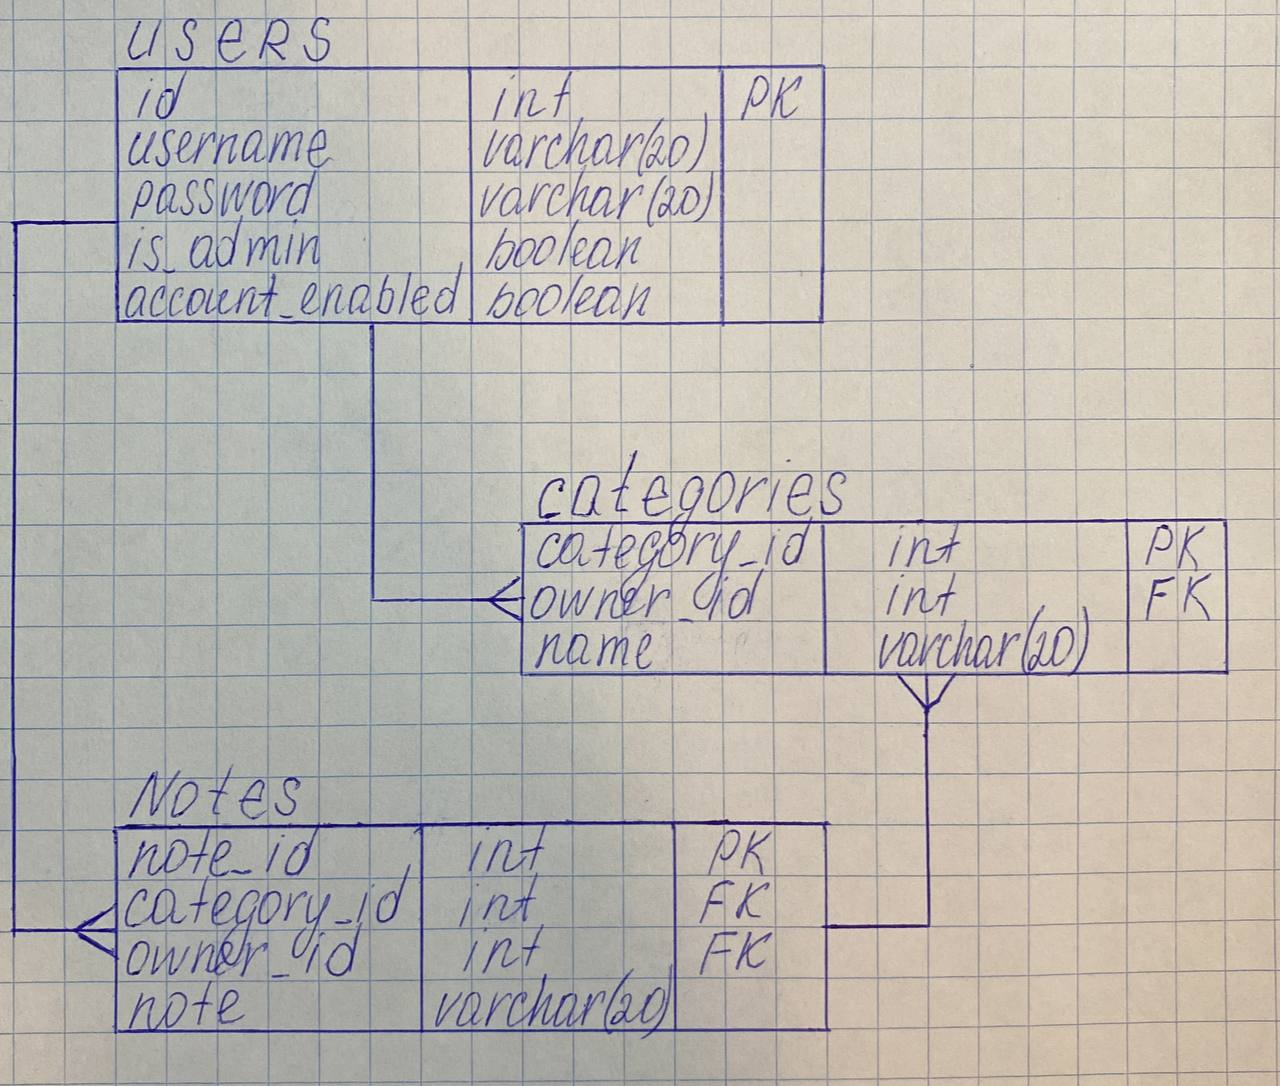 users
id int PK
username varchar(20)
password varchar(20)
is_admin boolean
account_enabled boolean
categories
category_id int PK
owner_id int FK
name varchar(20)
Notes
note_id int PK
category_id int FK
owner_id int FK
note varchar(20)